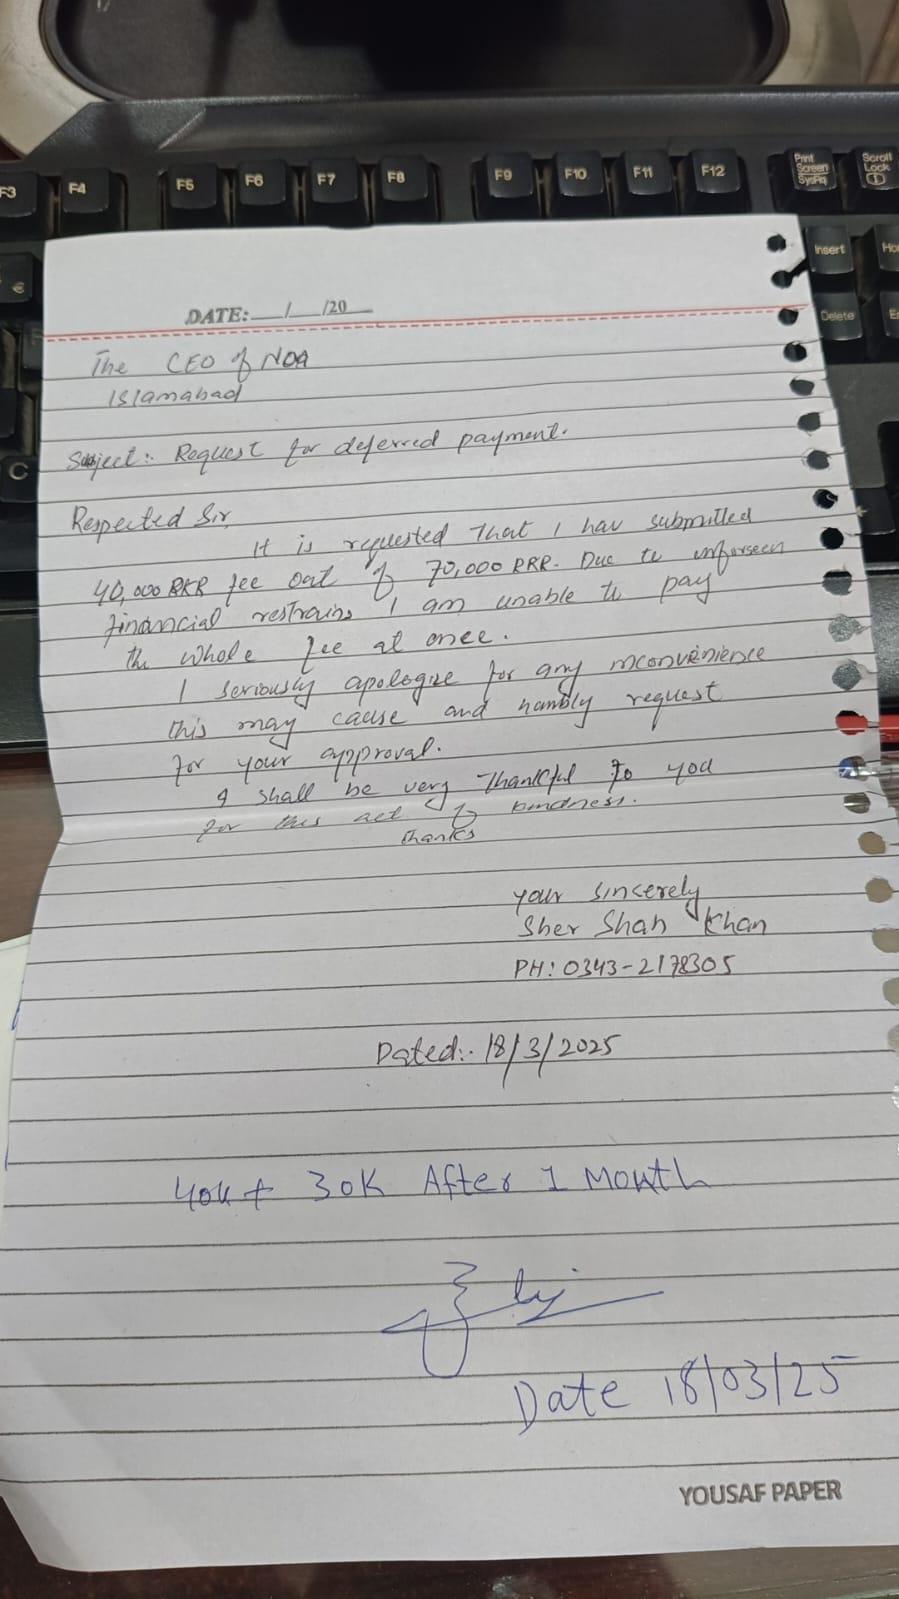 F3 F4 F5 F6 F7 F8 F9 F10 F11 F12 Print Screen SysRq Scroll Lock
Insert
Delete
€
C
DATE: __/__/20__
The CEO of NOA
Islamabad
Subject:- Request for deferred payment.
Respected Sir,
It is requested That I hav submitted
40,000 PKR fee out of 70,000 PKR. Due to unforseen
financial restrains I am unable to pay
the whole fee at once.
I seriously apologize for any inconvenience
this may cause and humbly request
for your approval.
I shall be very Thankful to you
for this act of kindness.
Thanks
your sincerely
Sher Shah Khan
PH: 0343-2178305
Dated:- 18/3/2025
40K + 30K After 1 Month
Date 18/03/25
YOUSAF PAPER